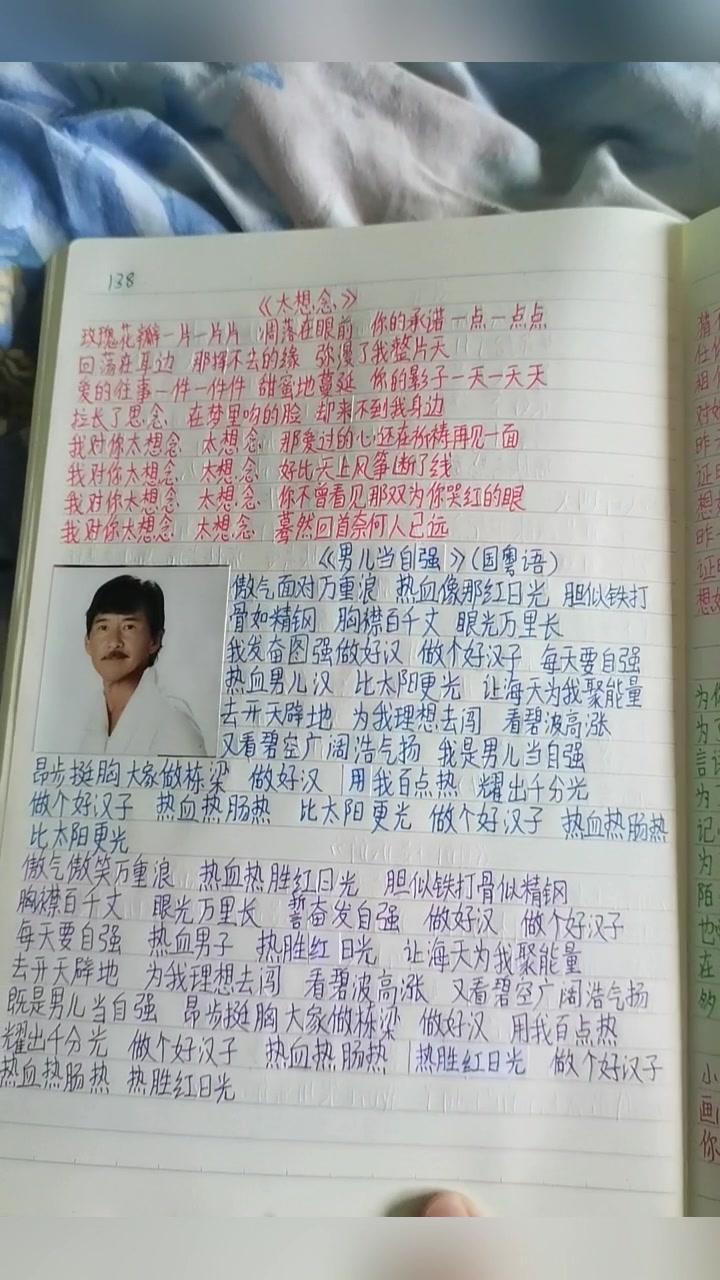 138
《太想念》
玫瑰花瓣一片一片片 凋落在眼前 你的承诺一点一点点
回荡在耳边 那挥不去的缘 弥漫了我整片天
爱的往事一件一件件 甜蜜地蔓延 你的影子一天一天天
拉长了思念 在梦里吻的脸 却来不到我身边
我对你太想念 太想念 那爱过的心还在祈祷再见一面
我对你太想念 太想念 好比天上风筝断了线
我对你太想念 太想念 你不曾看见那双为你哭红的眼
我对你太想念 太想念 蓦然回首奈何人已远
《男儿当自强》(国粤语)
傲气面对万重浪 热血像那红日光 胆似铁打
骨如精钢 胸襟百千丈 眼光万里长
我发奋图强做好汉 做个好汉子 每天要自强
热血男儿汉 比太阳更光 让海天为我聚能量
去开天辟地 为我理想去闯 看碧波高涨
又看碧空广阔浩气扬 我是男儿当自强
昂步挺胸大家做栋梁 做好汉 用我百点热 耀出千分光
做个好汉子 热血热肠热 比太阳更光 做个好汉子 热血热肠热
比太阳更光
傲气傲笑万重浪 热血热胜红日光 胆似铁打骨似精钢
胸襟百千丈 眼光万里长 誓奋发自强 做好汉 做个好汉子
每天要自强 热血男子 热胜红日光 让海天为我聚能量
去开天辟地 为我理想去闯 看碧波高涨 又看碧空广阔浩气扬
既是男儿当自强 昂步挺胸大家做栋梁 做好汉 用我百点热
耀出千分光 做个好汉子 热血热肠热 热胜红日光 做个好汉子
热血热肠热 热胜红日光